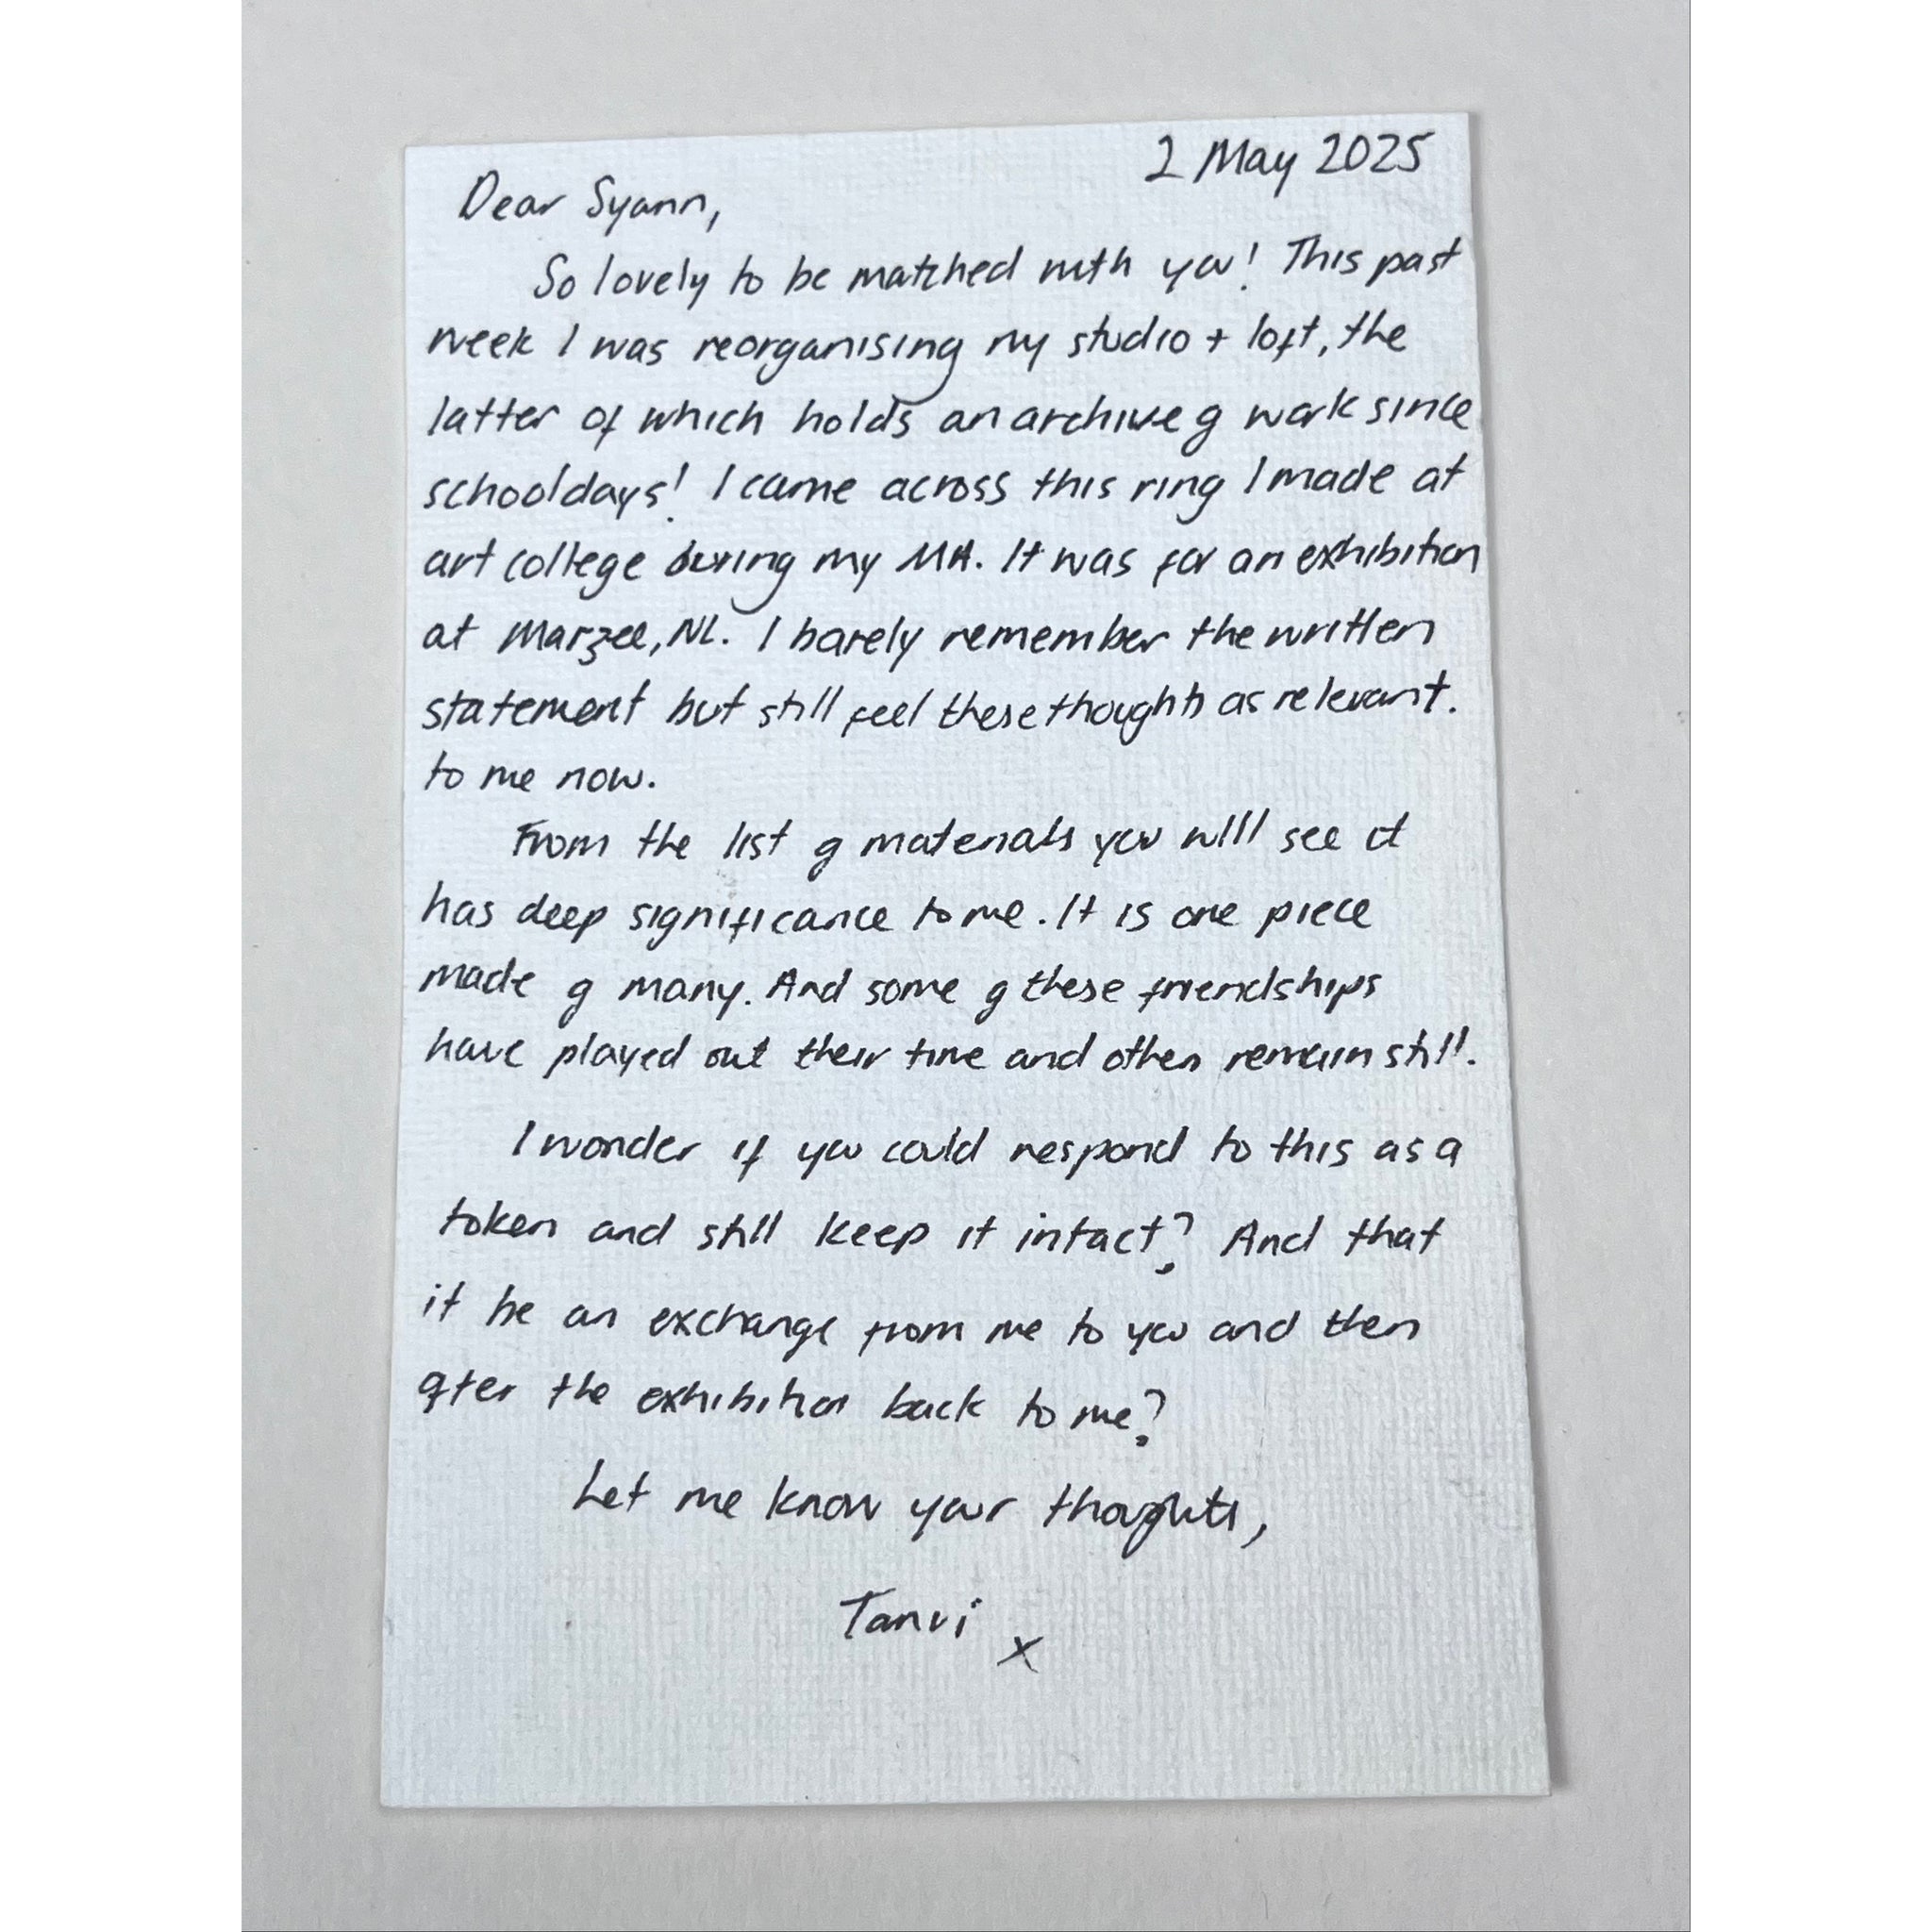 2 May 2025
Dear Syann,
So lovely to be matched with you! This past
week I was reorganising my studio + loft, the
latter of which holds an archive of work since
schooldays! I came across this ring I made at
art college during my MA. It was for an exhibition
at Marzee, NL. I barely remember the written
statement but still feel these thoughts as relevant.
to me now.
From the list of materials you will see it
has deep significance to me. It is one piece
made of many. And some of these friendships
have played out their time and others remain still.
I wonder if you could respond to this as a
token and still keep it intact? And that
it be an exchange from me to you and then
after the exhibition back to me?
Let me know your thoughts,
Tanvi x